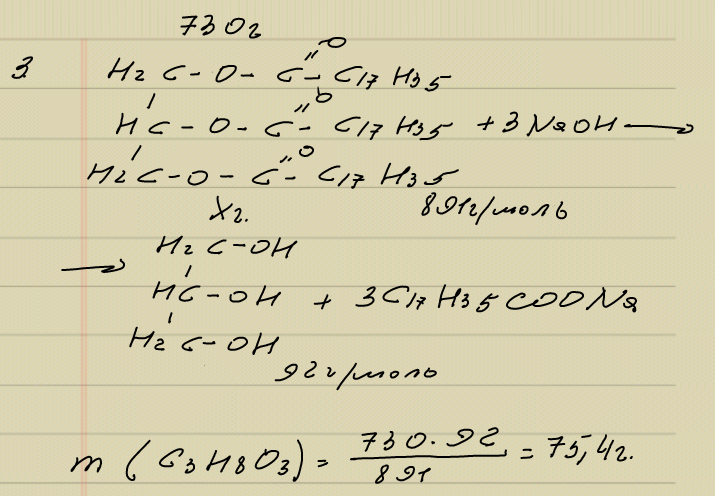 730г
3. H₂C-O-C(=O)-C₁₇H₃₅
HC-O-C(=O)-C₁₇H₃₅ +3NaOH ⟶
H₂C-O-C(=O)-C₁₇H₃₅
Xг. 891г/моль
⟶ H₂C-OH
HC-OH + 3C₁₇H₃₅COONa
H₂C-OH
92г/моль
m (C₃H₈O₃) = 730·92/891 = 75,4г.